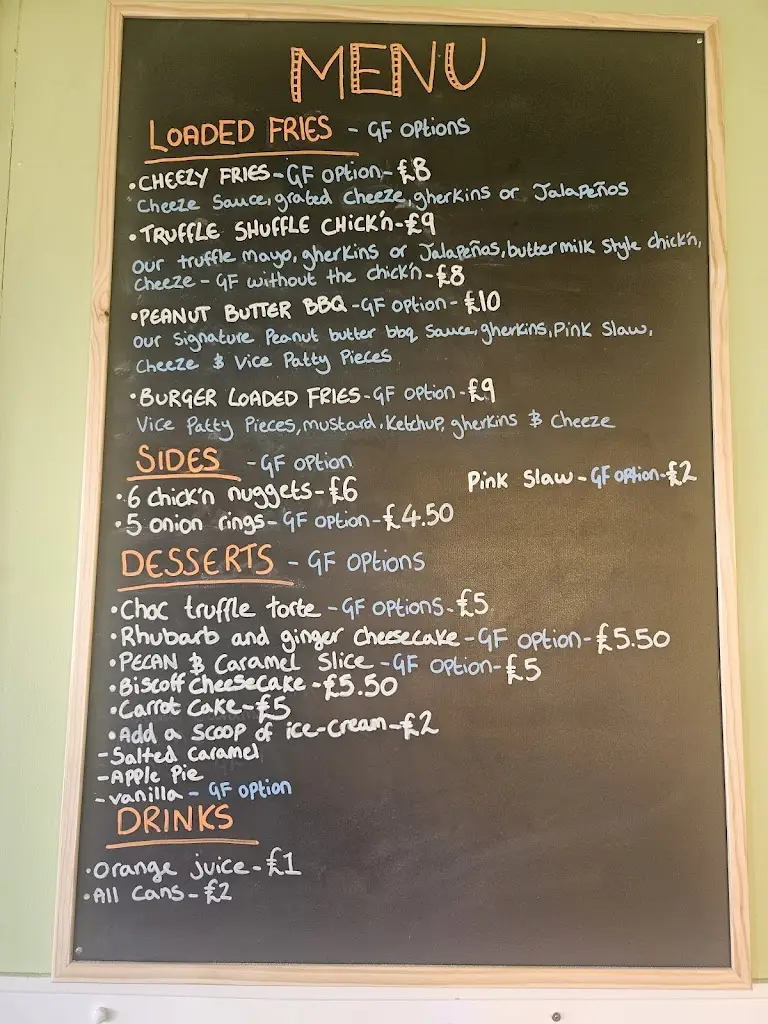 MENU
LOADED FRIES - GF OPtions
•CHEEZY FRIES-GF OPtion-£8
Cheeze Sauce, grated Cheeze, gherkins or Jalapeños
•TRUFFLE SHUFFLE CHICK'n-£9
our truffle mayo, gherkins or Jalapeños, buttermilk Style chick'n,
Cheeze - GF without the chick'n -£8
•PEANUT BUTTER BBQ -GF option- £10
our Signature Peanut butter bbq Sauce, gherkins, Pink Slaw,
Cheeze & Vice Patty Pieces
•BURGER LOADED FRIES-GF Option-£9
Vice Patty Pieces, mustard, Ketchup, gherkins & Cheeze
SIDES - GF OPtion
•6 chick'n nuggets-£6
Pink Slaw-GF option-£2
•5 onion rings- GF option-£4.50
DESSERTS - GF OPtions
•Choc truffle torte -GF options-£5
•Rhubarb and ginger cheesecake-GF option-£5.50
•PECAN & Caramel Slice -GF option-£5
•Biscoff Cheesecake -£5.50
•Carrot Cake-£5
•Add a Scoop of ice-cream-£2
-Salted Caramel
-Apple Pie
-vanilla - GF option
DRINKS
•orange juice-£1
•All Cans-£2